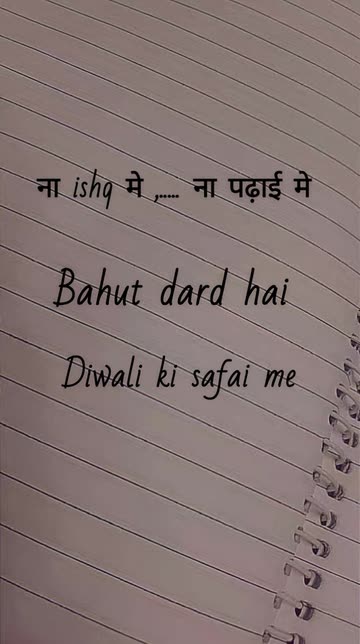 ना ishq मे ,..... ना पढ़ाई मे
Bahut dard hai
Diwali ki safai me